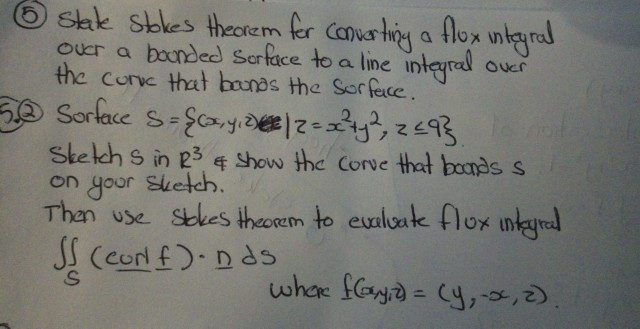 ⑤ State Stokes theorem for converting a flux integral
over a bounded surface to a line integral over
the curve that bounds the surface.
5.② Surface S = {(x,y,z) | z = x²+y², z ≤ 9}.
Sketch S in R³ & show the curve that bounds S
on your sketch.
Then use Stokes theorem to evaluate flux integral
∬ (curl f)·n ds
S
where f(x,y,z) = (y,-x,z).